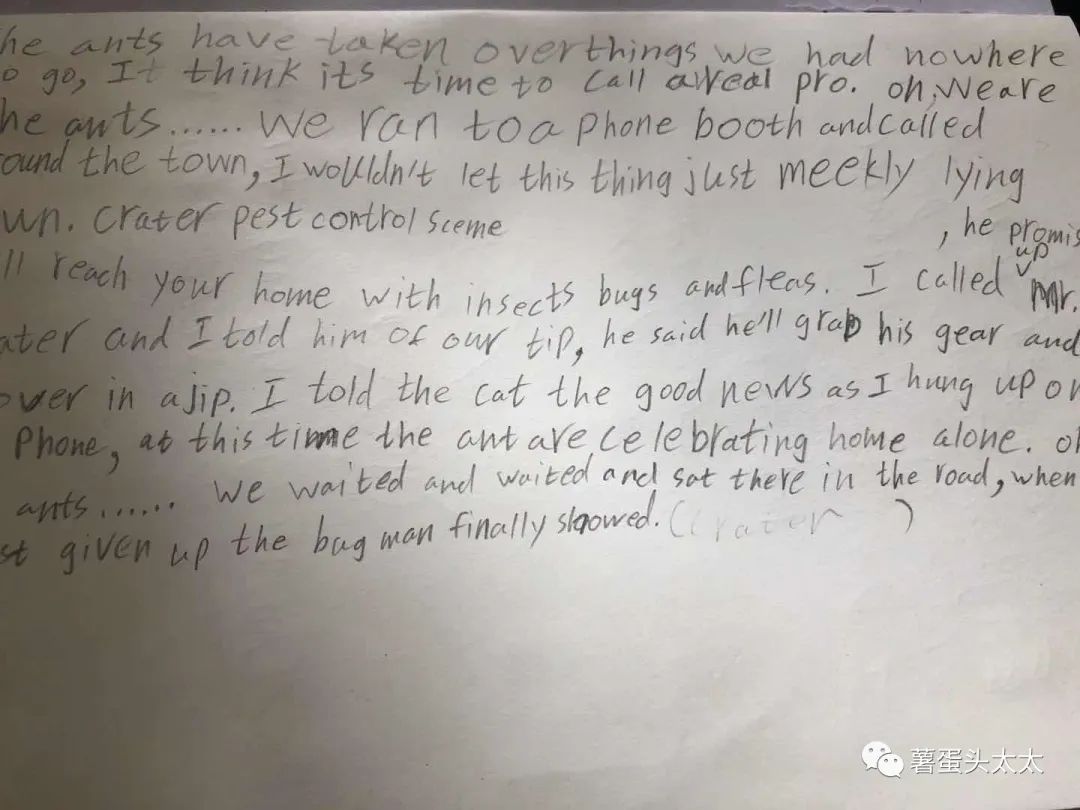 he ants have taken overthings we had nowhere
o go, It think its time to call a real pro. oh, We are
he ants...... We ran to a phone booth and called
ound the town, I wouldn't let this thing just meekly lying
wn. Crater pest control sceme , he promis
ll reach your home with insects bugs and fleas. I called up Mr.
ater and I told him of our tip, he said he'll grab his gear and
over in a jip. I told the cat the good news as I hung up on
Phone, at this time the ant are celebrating home alone. oh
ants...... We waited and waited and sat there in the road, when
st given up the bug man finally showed. (Crater )
薯蛋头太太